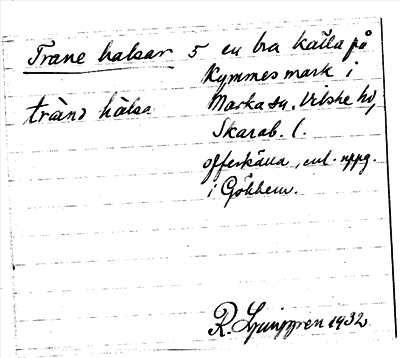 Trane halsar 5 en bra källa på
Kymmes mark i
trànə hàlsa Marka sn. Vilske hd,
Skarab. l.
offerkälla, enl. uppg.
i Gökhem.
R. Ljunggren 1932